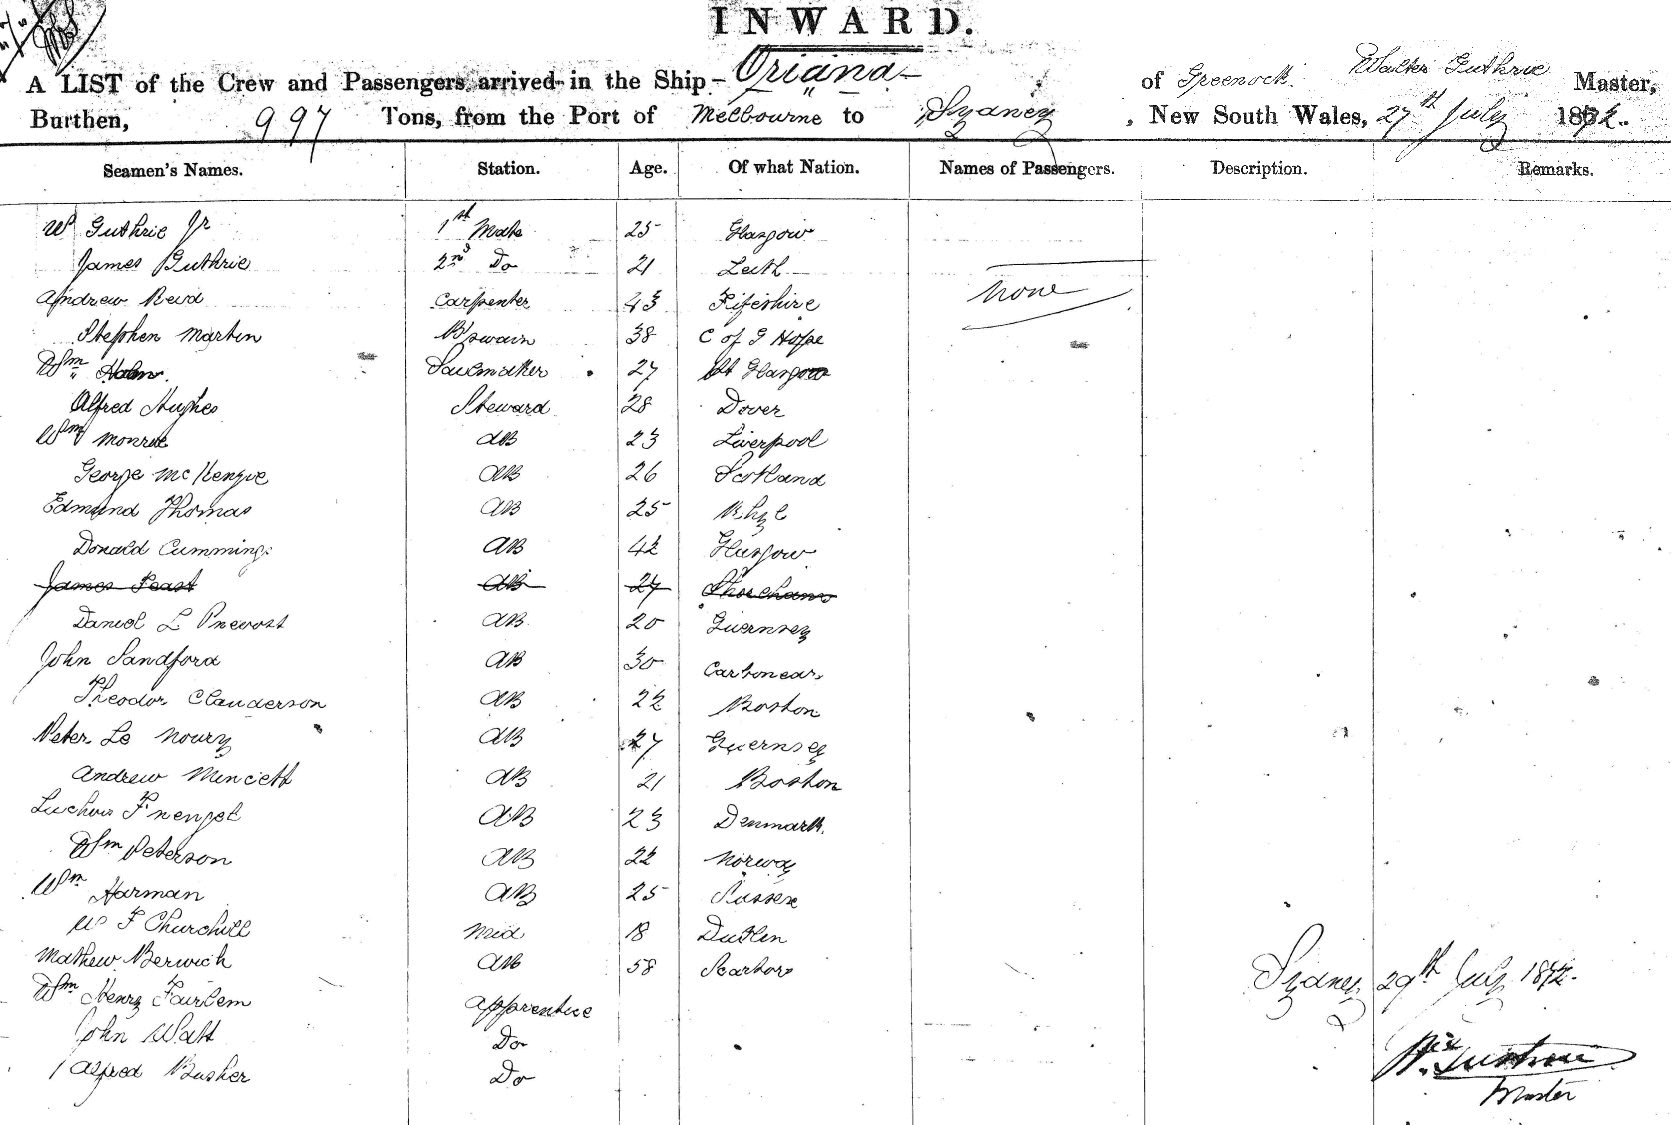 INWARD.
A LIST of the Crew and Passengers arrived in the Ship Oriana of Greenock. Walter Guthrie Master,
Burthen, 997 Tons, from the Port of Melbourne to Sydney, New South Wales, 27th July 1872.
Seamen's Names. Station. Age. Of what Nation. Names of Passengers. Description. Remarks.
W Guthrie Jr 1st Mate 25 Glasgow
James Guthrie 2nd Do 21 Leith
none
Andrew Reid Carpenter 43 Fifeshire
Stephen Martin B'swain 38 C of G Hope
Wm Holm. Sailmaker 27 Glasgow
Alfred Hughes Steward 28 Dover
Wm Monroe AB 23 Liverpool
George McKenzie AB 26 Scotland
Edmund Thomas AB 25 Rhyl
Donald Cumming AB 42 Glasgow
James Feast AB 27 Shoreham
Daniel L Prevost AB 20 Guernsey
John Sandford AB 30 Carbonear
Theodor Clauderson AB 22 Boston
Peter Le Noury AB 27 Guernsey
Andrew Mincett AB 21 Boston
Frengel AB 23 Denmark.
Wm Peterson AB 22 Norway
Wm Harman AB 25 Sussex
W F Churchill Mid 18 Dublin
Mathew Berwick AB 58 Scarboro
Wm Henry Fairlem Apprentice
John Watt Do
Alfred Busher Do
Sydney 29th July 1872.
Guthrie
Master